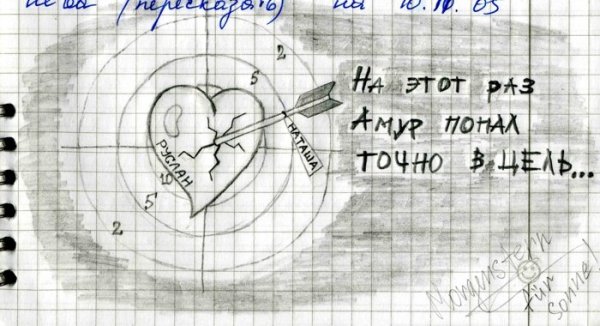 (пересказать) на
2
5
НА ЭТОТ РАЗ
АМУР ПОПАЛ
ТОЧНО В ЦЕЛЬ...
НАТАША
РУСЛАН
10
5
2
für
Sonne!